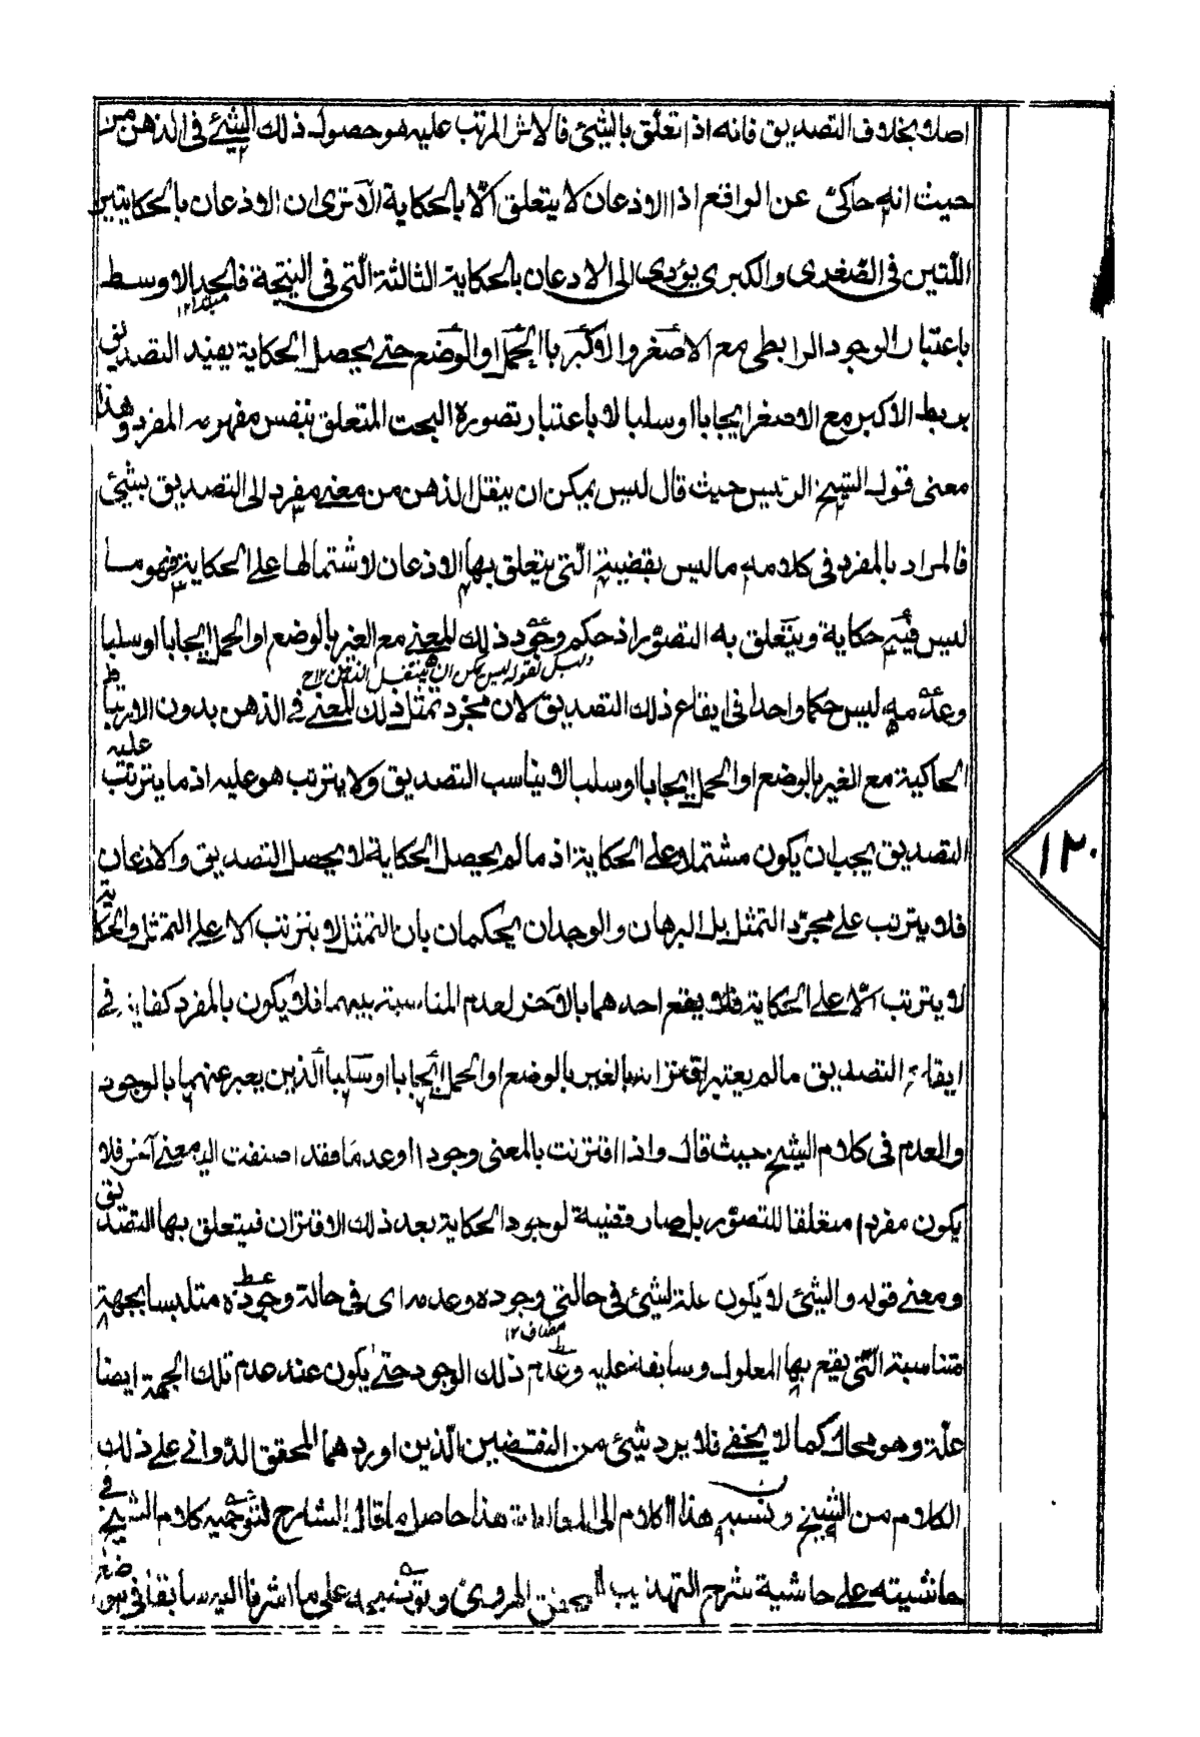 اصلا بخلاف التصديق فانه اذا تعلق بالشئ فالاثر المرتب عليه هو حصول ذلك الشئ في الذهن من
حيث انه حاكئ عن الواقع اذ الاذعان لا يتعلق الا بالحكاية الا ترى ان الاذعان بالحكايتين
اللتين في الصغرى والكبرى يؤدى الى الاذعان بالحكاية الثالثة التى فى النتيجة فالحد الاوسط
مبتدا ١٢
باعتبار الوجود الرابطى مع الاصغر والاكبر بالحمل او الوضع حتے يحصل الحكاية يفيد التصديق
بربط الاكبر مع الاصغر ايجابا او سلبا لا باعتبار تصوره البحت المتعلق بنفس مفهومه المفرد وهذا
معنى قول الشيخ الرئيس حيث قال ليس يمكن ان ينقل الذهن من معنے مفرد الى التصديق بشئ
فالمراد بالمفرد فى كلامه ما ليس بقضية التى يتعلق بها الاذعان لاشتمالها علے الحكاية فهو ما
ليس فيه حكاية ويتعلق به التصور اذ حكم وجود ذلك المعنے مع الغير بالوضع او الحمل ايجابا او سلبا
دليل لقوله ليس يمكن ان ينتقل الذهن ١٢ ح
وعدمه ليس حكما واحدا فى ايقاع ذلك التصديق لان مجرد تمثل ذلك المعنے فے الذهن بدون الارتباط
الحاكية مع الغير بالوضع او الحمل ايجابا او سلبا لا يناسب التصديق ولا يترتب هو عليه اذ ما يترتب عليه
التصديق يجب ان يكون مشتملا على الحكاية اذ ما لم يحصل الحكاية لا يحصل التصديق والاذعان
فلا يترتب علے مجرد التمثل بل البرهان والوجدان يحكمان بان التمثل لا يترتب الا علے التمثل والحكاية
لا يترتب الا علے الحكاية فلا يقع احدهما بالآخر لعدم المناسبة بينهما فلا يكون بالمفرد كفاية فے
ايقاع التصديق ما لم يعتبر اقترانه بالغير بالوضع او الحمل ايجابا او سلبا الذين يعبر عنهما بالوجود
والعدم فى كلام الشيخ حيث قال واذا اقترنت بالمعنى وجودا او عدما فقد اضفت اليه معنے آخر فلا
يكون مفردا متعلقا للتصور بل صار قضية لوجود الحكاية بعد ذلك الاقتران فيتعلق بها التصديق
ومعنے قوله والشئ لا يكون علة لشئ فى حالتى وجوده وعدمه اى فى حالة وجوده متلبسا بجهة
مضاف ١٢
متناسبة التى يقع بها المعلول وسابقة عليه وعدم ذلك الوجود حتے يكون عند عدم تلك الجهة ايضا
علة وهو محال كما لا يخفے فلا يرد شئ من النقضين الذين اوردهما المحقق الدوانے علے ذلك
الكلام من الشيخ ونسبة هذا الكلام الى هذا حاصل ما قال الشارح لتوجيه كلام الشيخ فے
حاشيته علے حاشية شرح التهذيب للمحقق الهروى وتوضيحه على ما اشرنا اليه سابقا فى موضعه
١٢٠